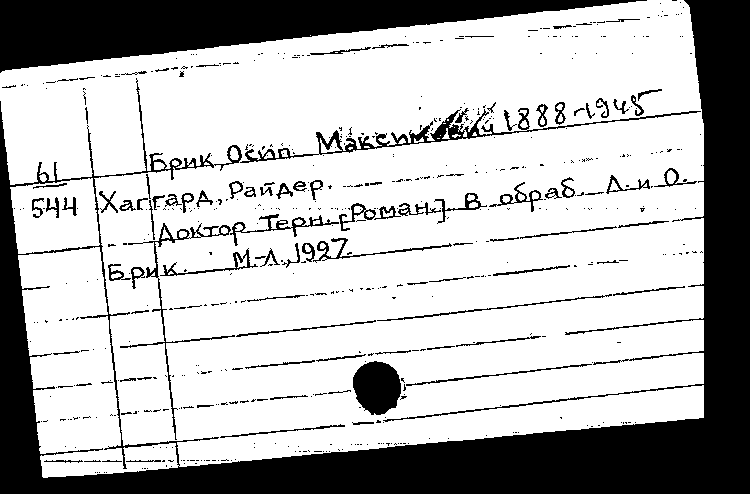 Брик, Осип Максимович 1888-1945
61
544 Хаггард, Райдер.
Доктор Терн. [Роман.] В обраб. Л. и О.
Брик. М.-Л., 1927.